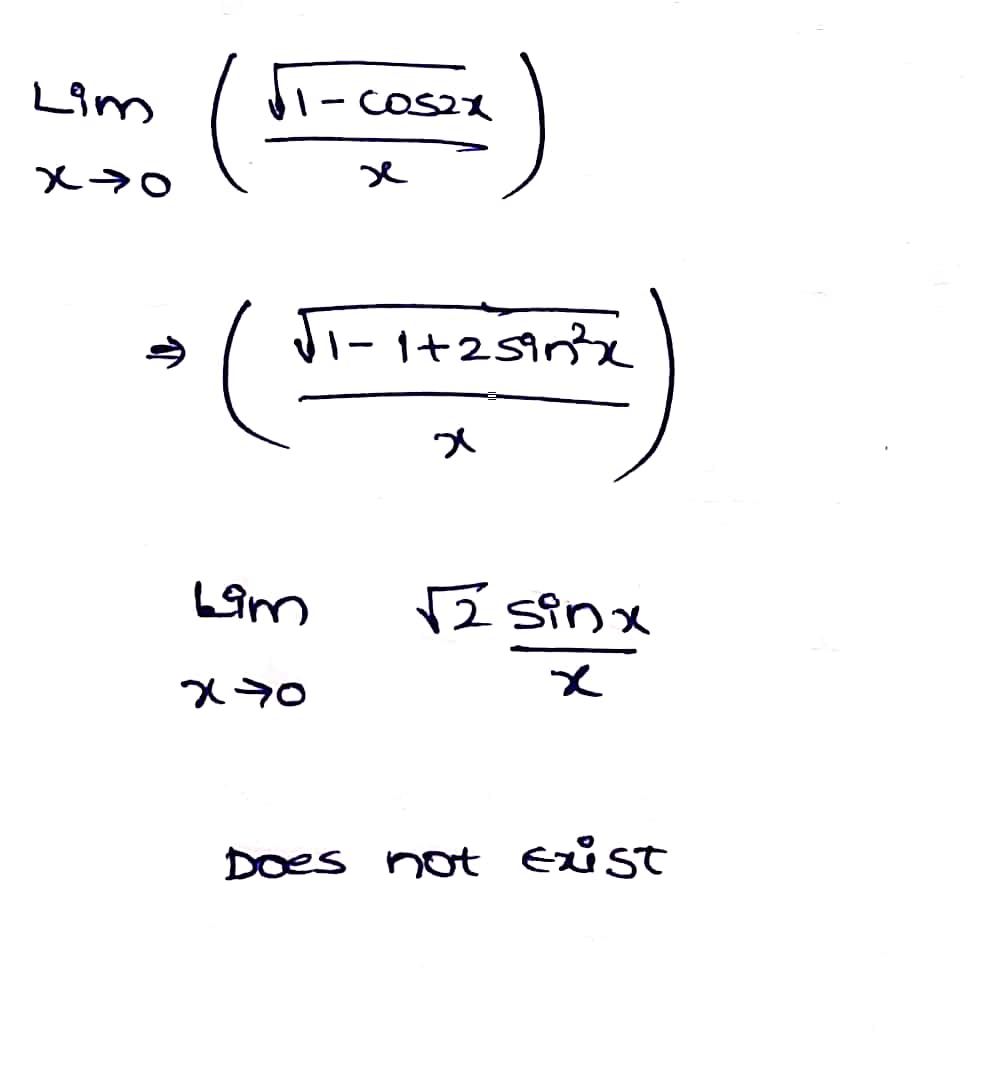 Lim ( √1-cos2x / x )
x→0
⇒ ( √1-1+2sin²x / x )
Lim √2 sinx / x
x→0
Does not Exist